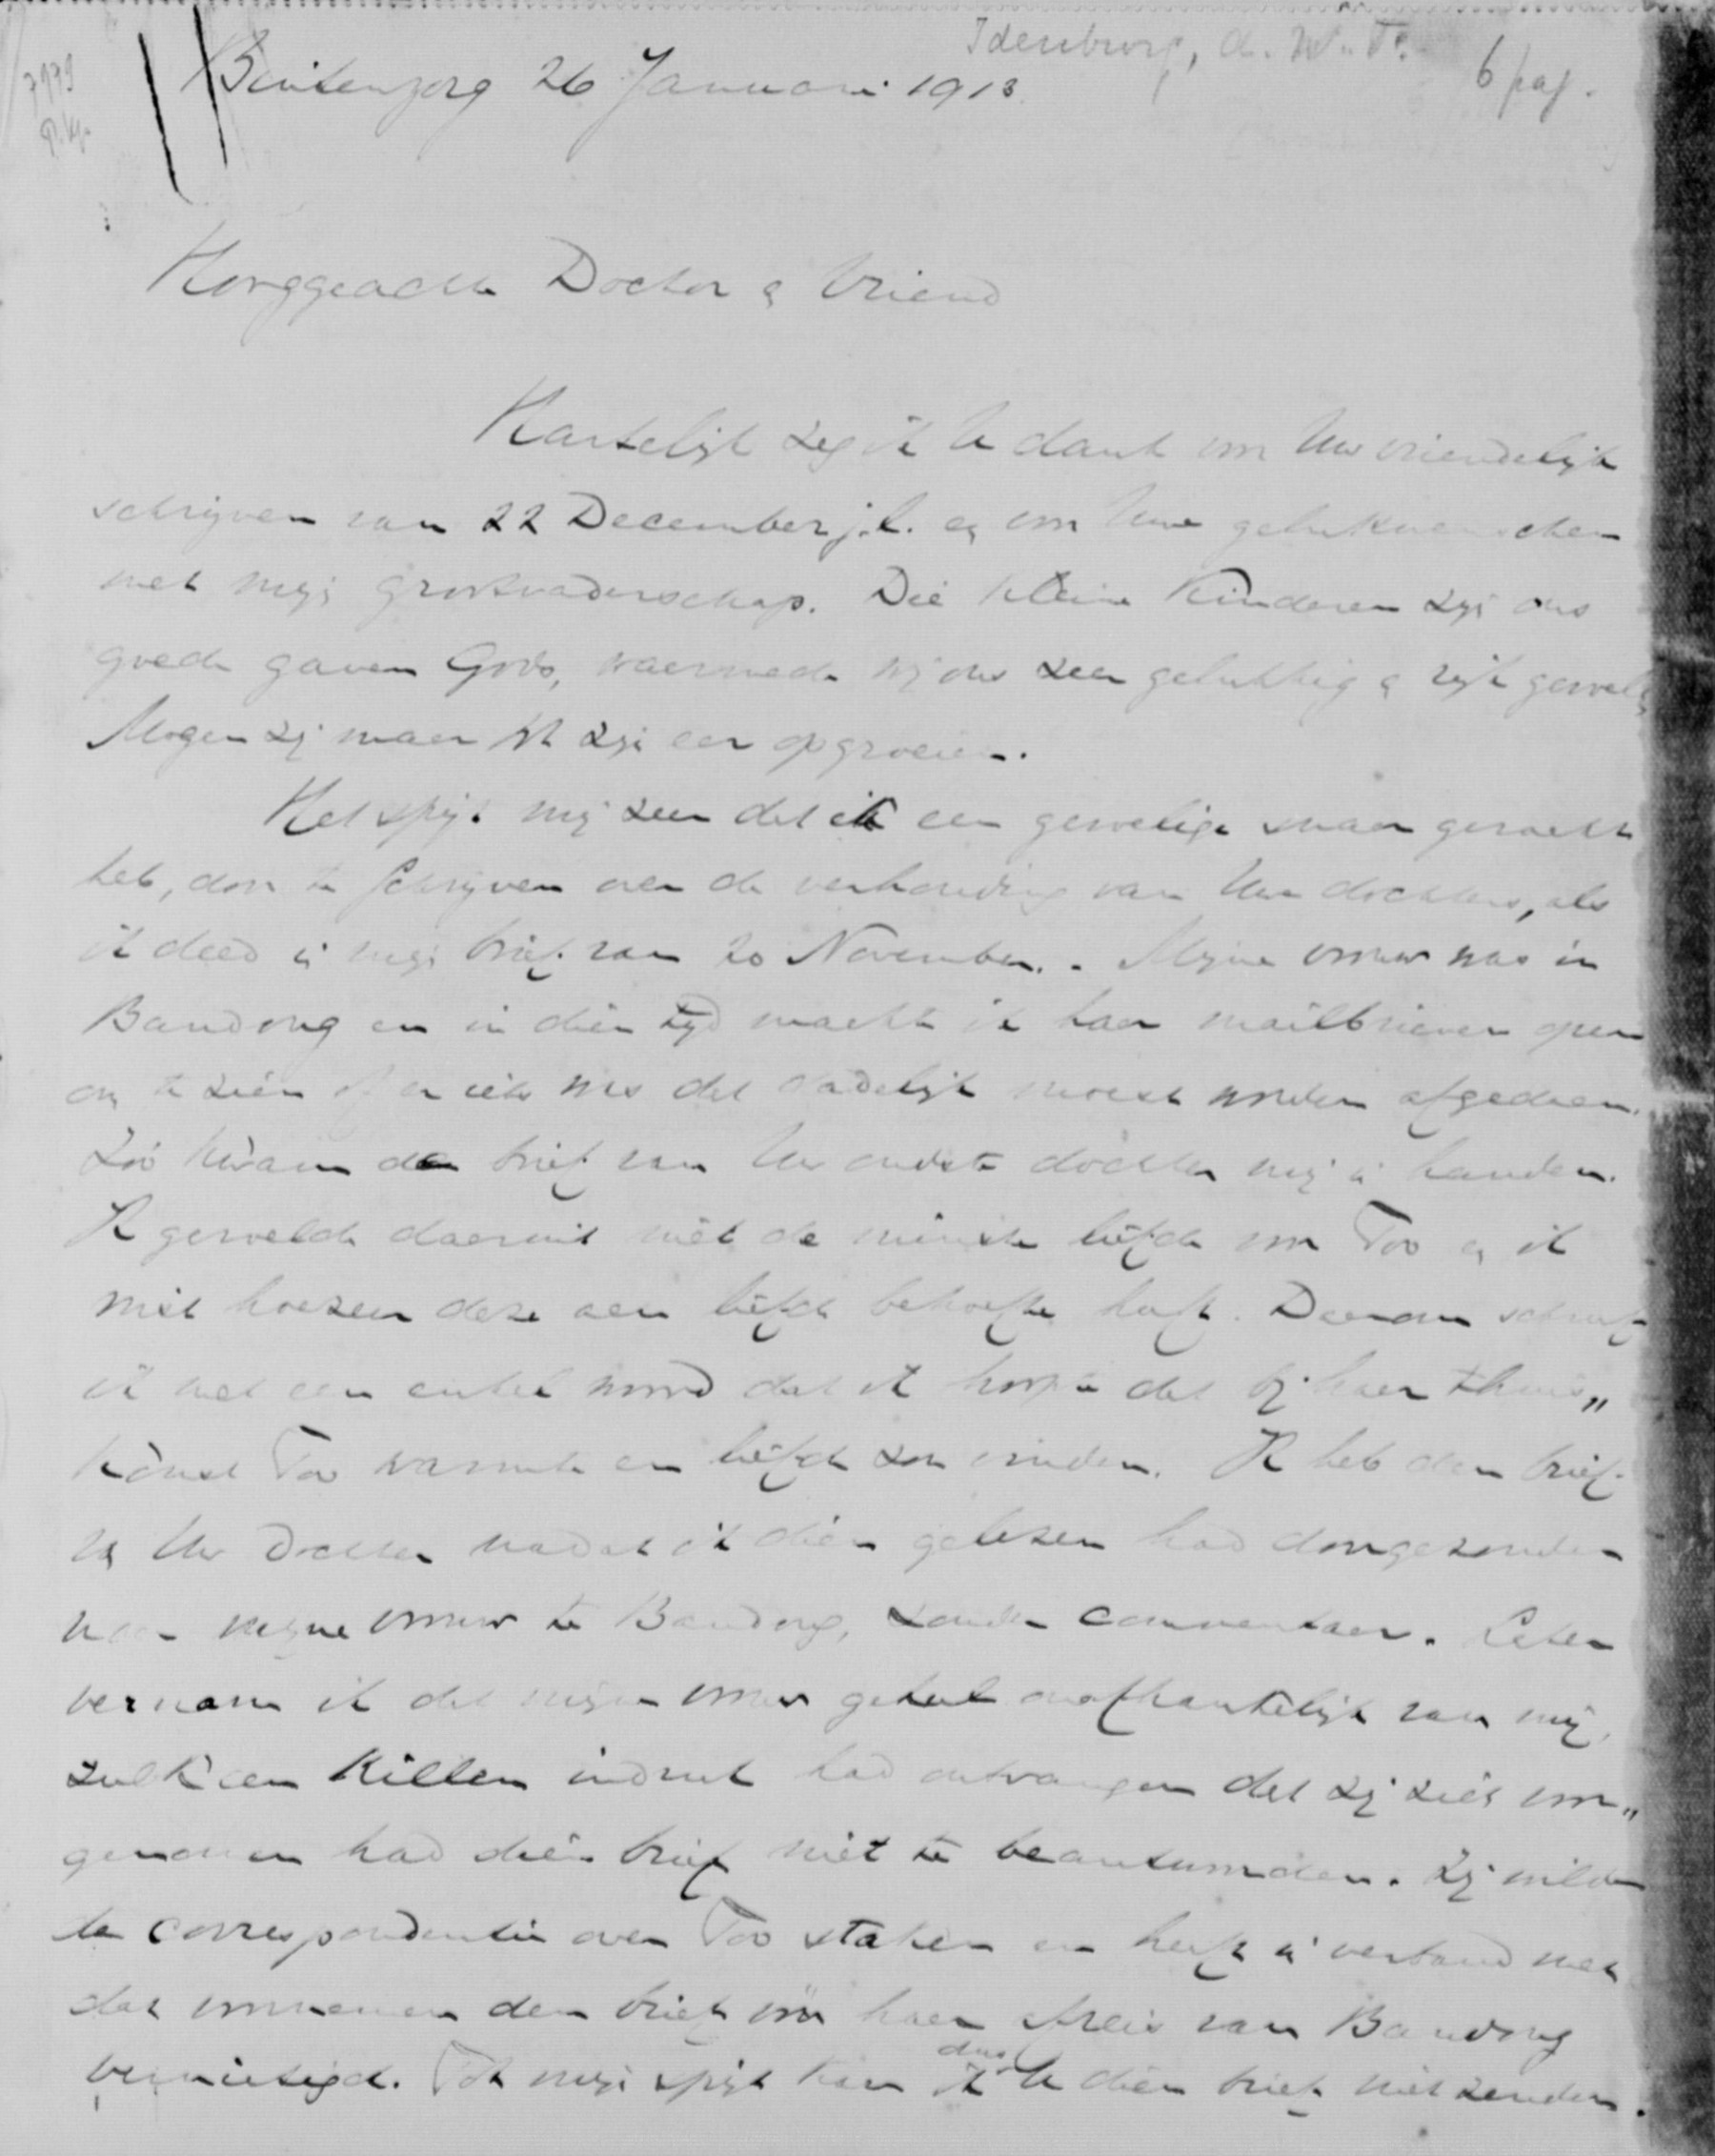 Idenburg, A. W. F.
6 pag.
Buitenzorg 26 Januari 1913
Hooggeachte Doctor & Vriend
Hartelijk zeg ik U dank voor Uw vriendelijk
schrijven van 22 December j.l. en voor Uwe gelukwenschen
met mijn grootvaderschap. Die kleine kinderen zijn ons
goede gaven Gods, waarmede wij ons zeer gelukkig & rijk gevoelen
Mogen zij maar tot zijn eer opgroeien.
Het spijt mij zeer dat ik een gevoelige snaar geraakt
heb, door te schrijven over de verhouding van Uw dochters, als
ik deed in mijn brief van 20 November. - Mijne vrouw was in
Bandong en in dien tijd maakte ik haar mailbrieven open
om te zien of er iets was dat dadelijk moest worden afgedaan.
Zoo kwam de brief van Uw oudste dochter mij in handen.
Ik gevoelde daaruit niet de minste liefde voor Too en ik
wist hoezeer deze aan liefde behoefte heeft. Daarom schreef
ik met een enkel woord dat ik hoopte dat bij haar thuis„
komst Too warmte en liefde zou vinden. Ik heb den brief
van Uw dochter nadat ik dien gelezen had doorgezonden
naar mijne vrouw te Bandong, zonder commentaar. Later
vernam ik dat mijne vrouw geheel onafhankelijk van mij,
zulk een killen indruk had ontvangen dat zij zich voor„
genomen had dien brief niet te beantwoorden. Zij wilde
de correspondentie over Too staken en heeft in verband met
dat voornemen den brief vóór haar afreis van Bandong
vernietigd. Tot mijn spijt kan ik dus U dien brief niet zenden.